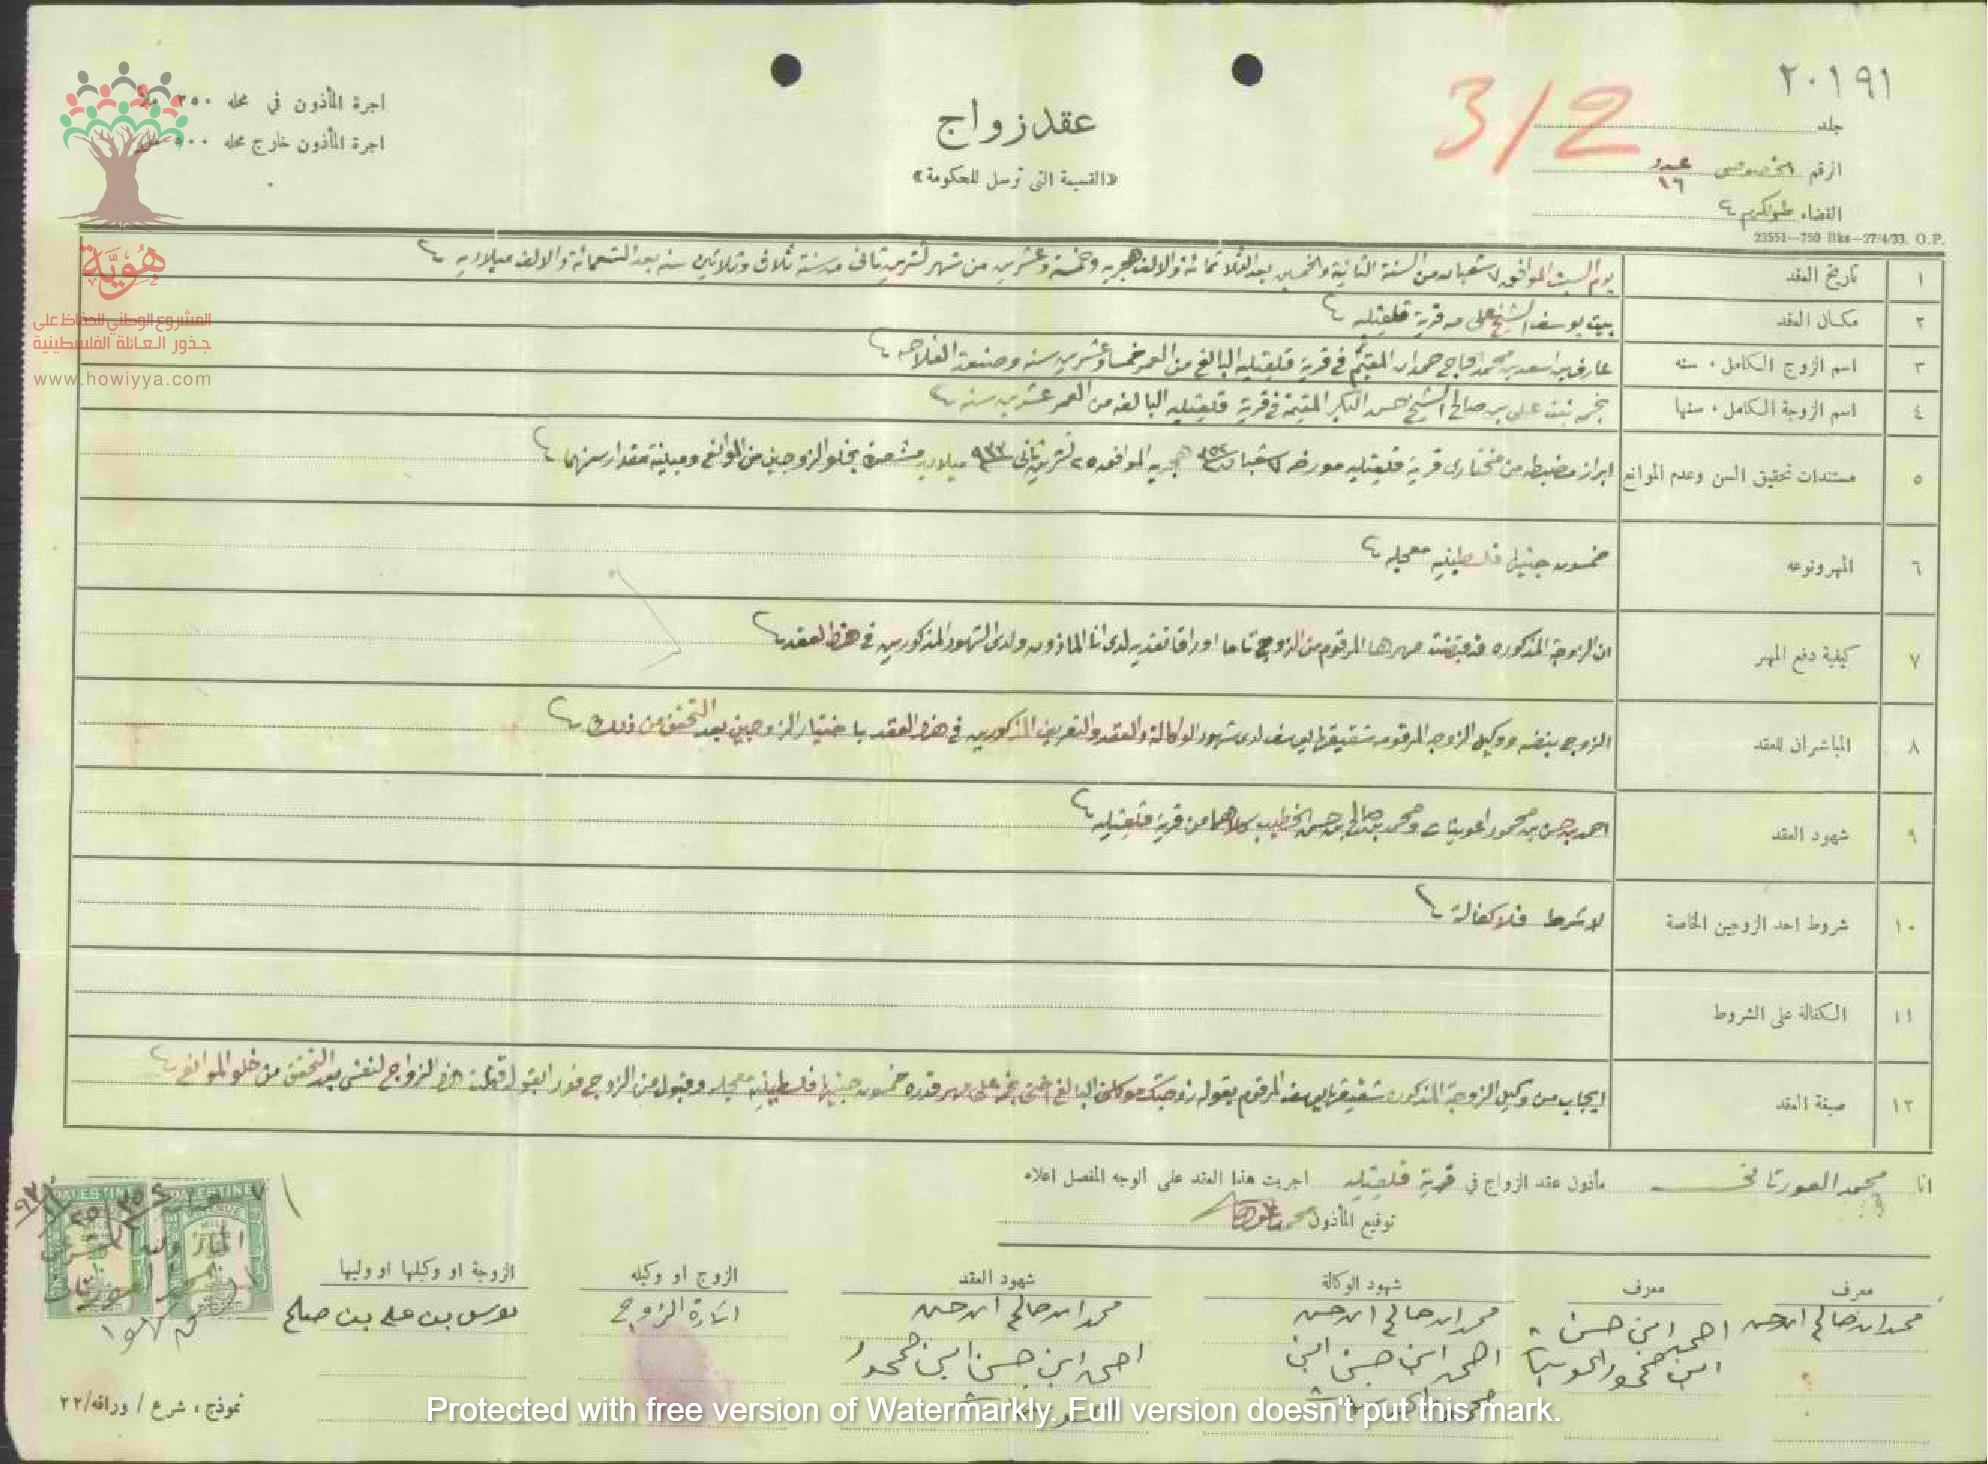 ٢٠١٩١
جلد
3/2
الرقم الخصوصي عدد ١٦
القضاء طولكرم
23551—750 Bks—27/4/33. O.P.
عقد زواج
«القسيمة التي ترسل للحكومة»
اجرة المأذون في محله ٢٥٠
اجرة المأذون خارج محله ٥٠٠
هُوِيَّة
المشروع الوطني للحفاظ على
جذور العائلة الفلسطينية
www.howiyya.com
١ تاريخ العقد يوم السبت الموافق ٧ شعبان من السنة الثانية والخمسين بعد الثلاثمائة والالف هجريه وخمسة وعشرين من شهر تشرين ثاني من سنة ثلاث وثلاثين سنه بعد التسعمائة والالف ميلاديه
٢ مكان العقد بيت يوسف الشيخ علي من قرية قلقيليه
٣ اسم الزوج الكامل . سنه عارف بن اسعد بن محمد الحاج حمدان المقيم في قرية قلقيليه البالغ من العمر خمسا وعشرين سنه وصنعته الفلاحه
٤ اسم الزوجة الكامل . سنها نجمه بنت علي بن صالح الشيخ حسن البكر المقيمة في قرية قلقيليه البالغه من العمر عشرين سنه
٥ مستندات تحقيق السن وعدم الموانع ابراز مضبطه من مختاري قرية قلقيليه مورخه ٧ شعبان ٣٥٢ هجريه الموافق ٢٥ تشرين ثاني ٩٣٣ ميلاديه مشعرة بخلو الزوجين من الموانع ومبينة مقدار سنهما
٦ المهر ونوعه خمسون جنيها فلسطينيه معجله
٧ كيفية دفع المهر ان الزوجة المذكوره قد قبضت مهرها المرقوم من الزوج تاما اوراقا نقديه لدي انا الماذون ولدى الشهود المذكورين في هذا العقد
٨ المباشران للعقد الزوج بنفسه ووكيل الزوجه المرقومه شقيقها يوسف لدى شهود الوكالة والعقد والتعريف المذكورين في هذا العقد باختيار الزوجين بعد التحقق من ذلك
٩ شهود العقد احمد بن حسن بن محمود ومحمد بن صالح بن حسن الخطيب كلاهما من قرية قلقيليه
١٠ شروط احد الزوجين الخاصة لا شرط فلا كفالة
١١ الكفالة على الشروط
١٢ صيغة العقد ايجاب من وكيل الزوجة المذكوره شقيقها يوسف المرقوم بقوله زوجتك موكلتي البالغ اختي نجمه على مهر قدره خمسون جنيها فلسطينيه معجله وقبول من الزوج فورا بقوله قبلت هذا الزواج لنفسي بعد التحقق من خلو الموانع
انا محمد مأذون عقد الزواج في قرية قلقيليه اجريت هذا العقد على الوجه المفصل اعلاه
توقيع المأذون
معرف
محمد ابن صالح ابن حسن
معرف
احمد ابن حسن
ابن محمود
شهود الوكالة
محمد ابن صالح ابن حسن
احمد ابن حسن ابن
شهود العقد
محمد ابن صالح ابن حسن
احمد ابن حسن ابن محمود
الزوج او وكيله
اشارة الزوج
الزوجة او وكيلها او وليها
يوسف بن علي بن صالح
PALESTINE
PALESTINE
نموذج، شرع / وراقه/٢٢
Protected with free version of Watermarkly. Full version doesn't put this mark.